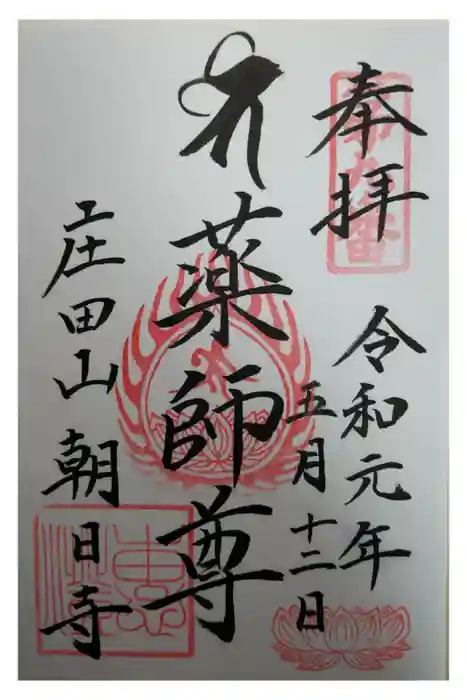 奉拝
令和元年
五月十二日
薬師尊
庄田山朝日寺